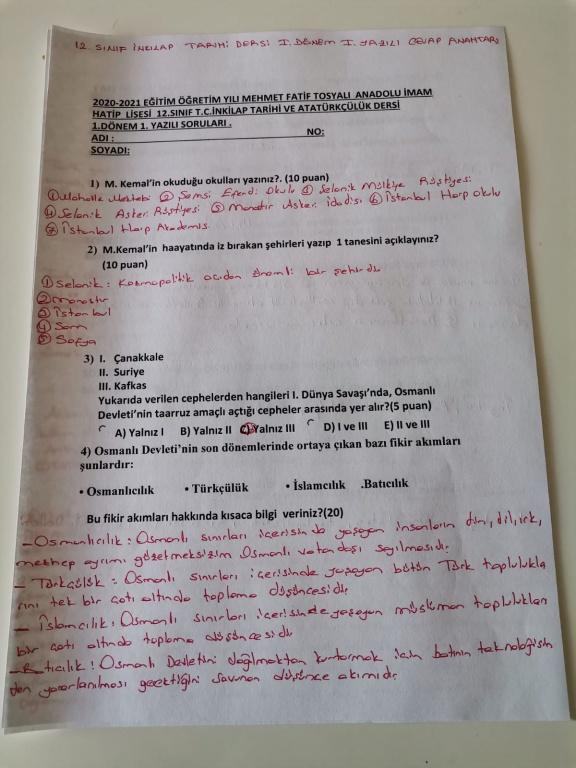 12. SINIF İNKILAP TARİHİ DERSİ I. DÖNEM I. YAZILI CEVAP ANAHTARI
2020-2021 EĞİTİM ÖĞRETİM YILI MEHMET FATİF TOSYALI ANADOLU İMAM
HATİP LİSESİ 12.SINIF T.C.İNKİLAP TARİHİ VE ATATÜRKÇÜLÜK DERSİ
1.DÖNEM 1. YAZILI SORULARI .
ADI : NO:
SOYADI:
1) M. Kemal'in okuduğu okulları yazınız?. (10 puan)
① Mahalle Mektebi ② Şemsi Efendi Okulu ③ Selanik Mülkiye Rüştiyesi
④ Selanik Askeri Rüştiyesi ⑤ Manastır Askeri idadisi ⑥ İstanbul Harp Okulu
⑦ İstanbul Harp Akademis
2) M.Kemal'in haayatında iz bırakan şehirleri yazıp 1 tanesini açıklayınız?
(10 puan)
① Selanik : Kozmopolitik açıdan önemli bir şehirdir
② Manastır
③ İstanbul
④ Şam
⑤ Sofya
3) I. Çanakkale
II. Suriye
III. Kafkas
Yukarıda verilen cephelerden hangileri I. Dünya Savaşı'nda, Osmanlı
Devleti'nin taarruz amaçlı açtığı cepheler arasında yer alır?(5 puan)
A) Yalnız I B) Yalnız II C) Yalnız III D) I ve III E) II ve III
4) Osmanlı Devleti'nin son dönemlerinde ortaya çıkan bazı fikir akımları
şunlardır:
• Osmanlıcılık • Türkçülük • İslamcılık .Batıcılık
Bu fikir akımları hakkında kısaca bilgi veriniz?(20)
- Osmanlıcılık : Osmanlı sınırları içerisinde yaşayan insanların din, dil, ırk,
mezhep ayrımı gözetmeksizin Osmanlı vatandaşı sayılmasıdır.
- Türkçülük : Osmanlı sınırları içerisinde yaşayan bütün Türk toplulukla
rını tek bir çatı altında toplama düşüncesidir.
- İslamcılık : Osmanlı sınırları içerisinde yaşayan müslüman toplulukları
bir çatı altında toplama düşüncesidir
- Batıcılık : Osmanlı Devletini dağılmaktan kurtarmak için batının teknolojisin
den yararlanılması gerektiğini savunan düşünce akımıdır